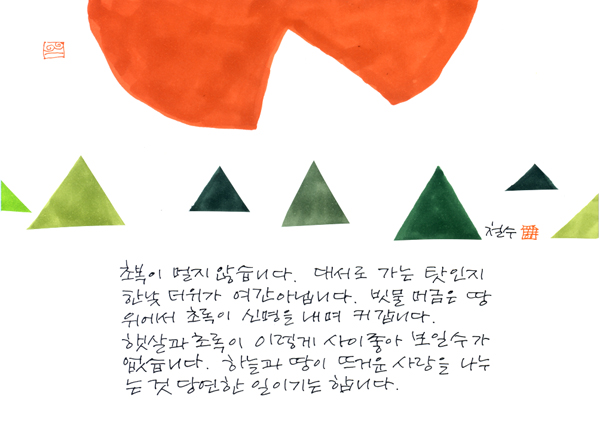 철수
초복이 멀지 않습니다. 대서로 가는 탓인지
한낮 더위가 여간아닙니다. 빗물 머금은 땅
위에서 초록이 신명을 내며 커갑니다.
햇살과 초록이 이렇게 사이좋아 보일수가
없습니다. 하늘과 땅이 뜨거운 사랑을 나누
는 것 당연한 일이기는 합니다.